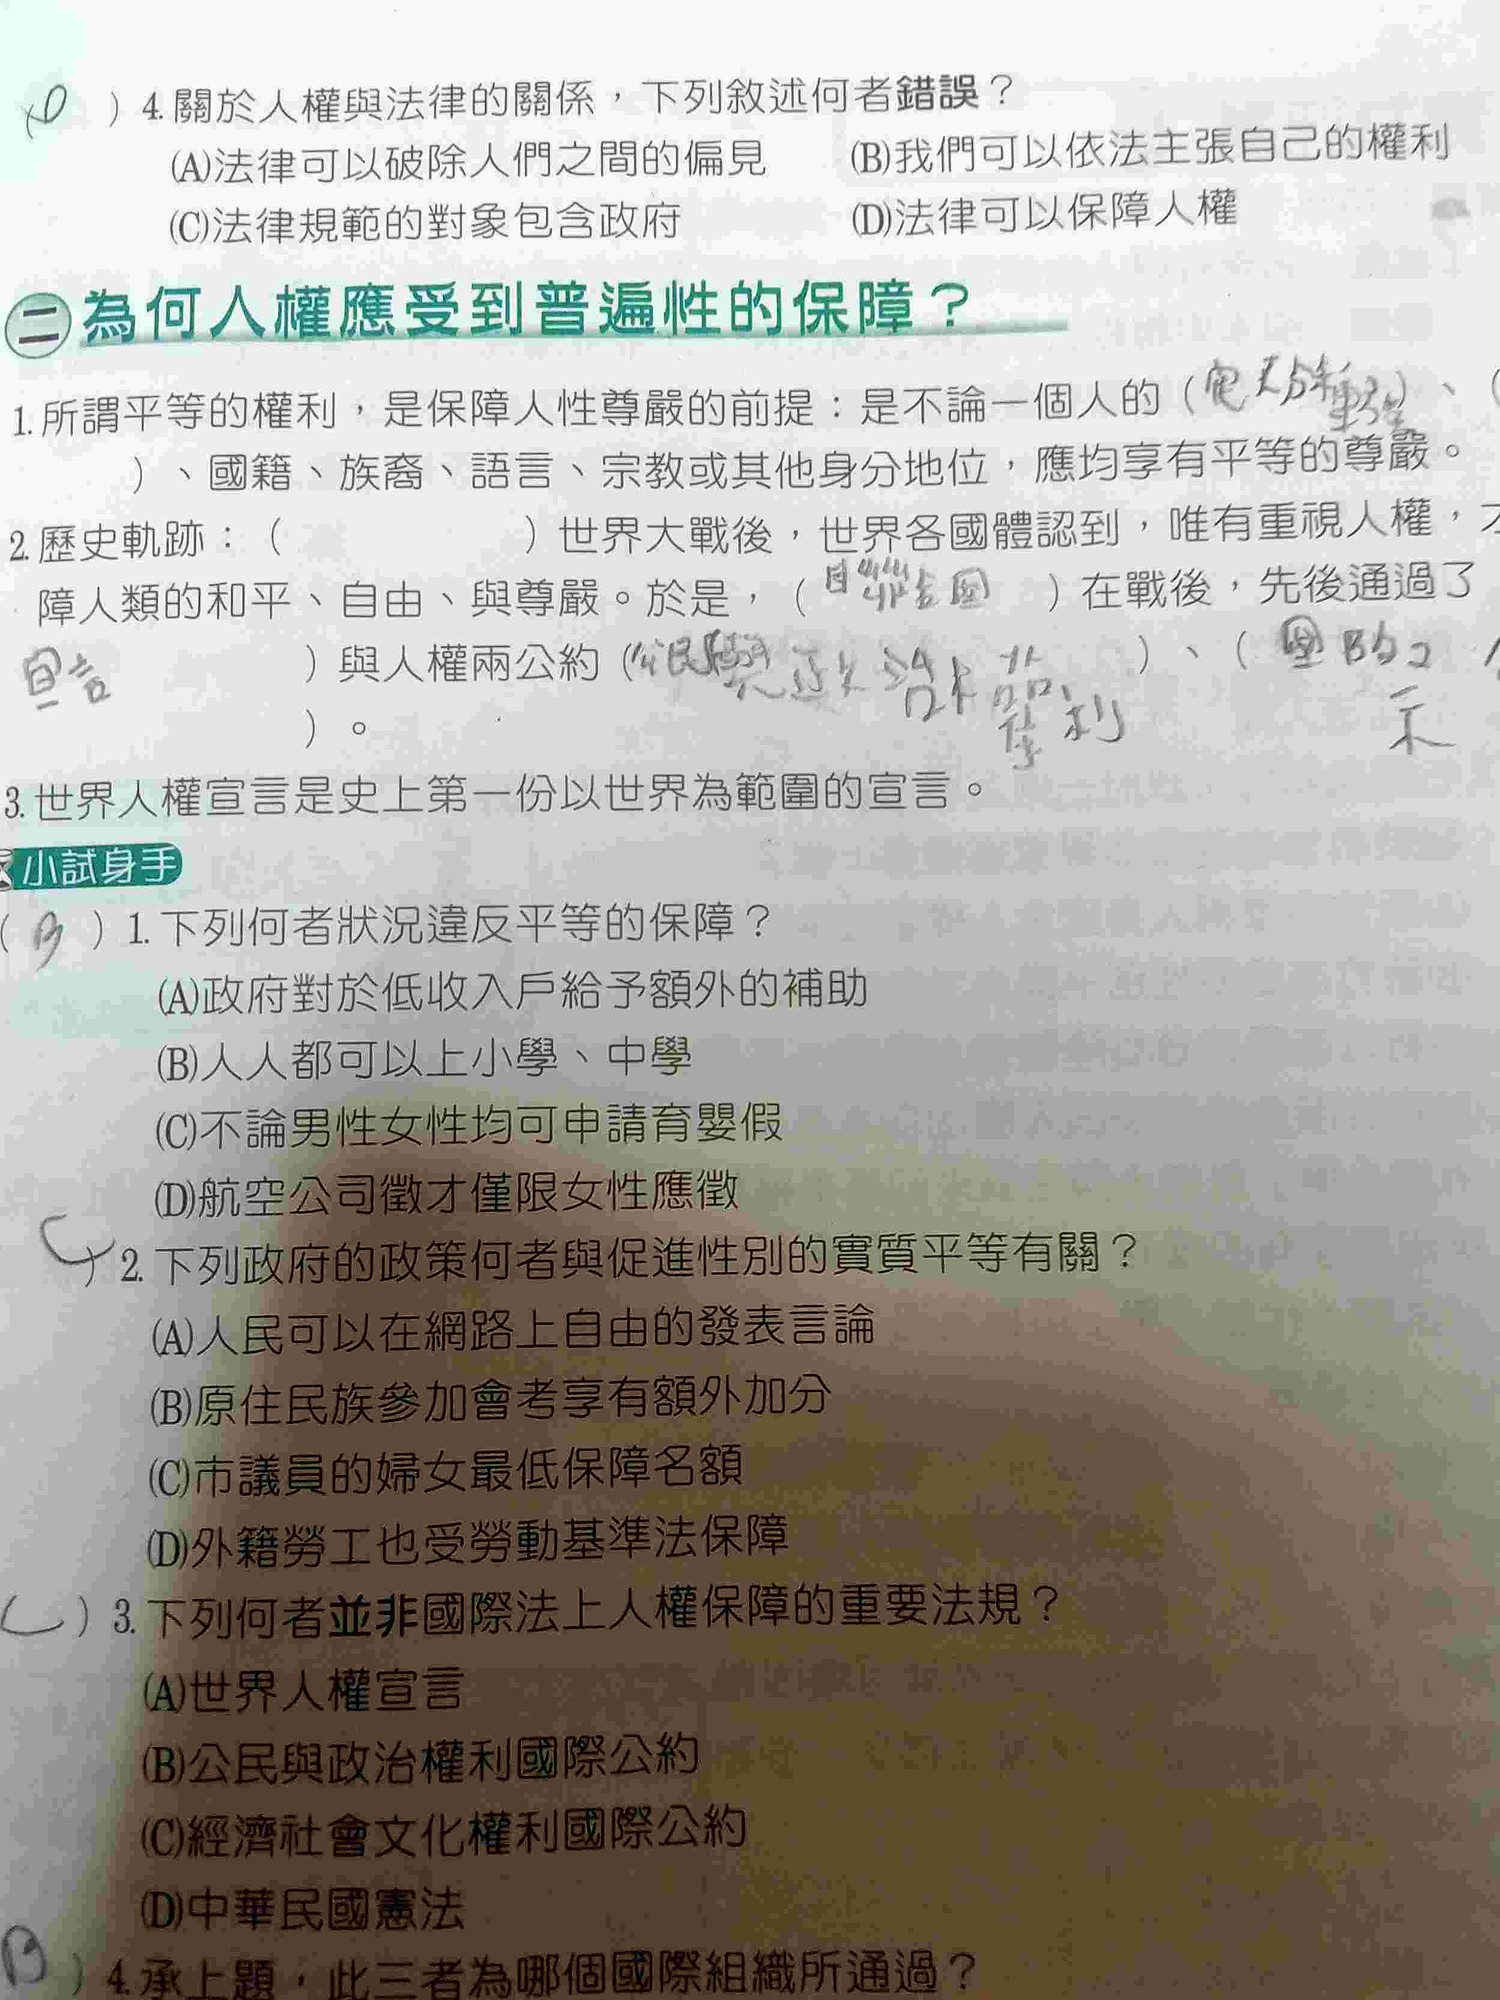 ) 4. 關於人權與法律的關係，下列敘述何者錯誤？
(A)法律可以破除人們之間的偏見 (B)我們可以依法主張自己的權利
(C)法律規範的對象包含政府 (D)法律可以保障人權
二 為何人權應受到普遍性的保障？
1. 所謂平等的權利，是保障人性尊嚴的前提：是不論一個人的（ ）、（
）、國籍、族裔、語言、宗教或其他身分地位，應均享有平等的尊嚴。
2. 歷史軌跡：（ ）世界大戰後，世界各國體認到，唯有重視人權，才
障人類的和平、自由、與尊嚴。於是，（ ）在戰後，先後通過了
宣言 ）與人權兩公約（ ）、（
）。
3. 世界人權宣言是史上第一份以世界為範圍的宣言。
小試身手
( B ) 1. 下列何者狀況違反平等的保障？
(A)政府對於低收入戶給予額外的補助
(B)人人都可以上小學、中學
(C)不論男性女性均可申請育嬰假
(D)航空公司徵才僅限女性應徵
C ) 2. 下列政府的政策何者與促進性別的實質平等有關？
(A)人民可以在網路上自由的發表言論
(B)原住民族參加會考享有額外加分
(C)市議員的婦女最低保障名額
(D)外籍勞工也受勞動基準法保障
) 3. 下列何者並非國際法上人權保障的重要法規？
(A)世界人權宣言
(B)公民與政治權利國際公約
(C)經濟社會文化權利國際公約
(D)中華民國憲法
B ) 4. 承上題，此三者為哪個國際組織所通過？